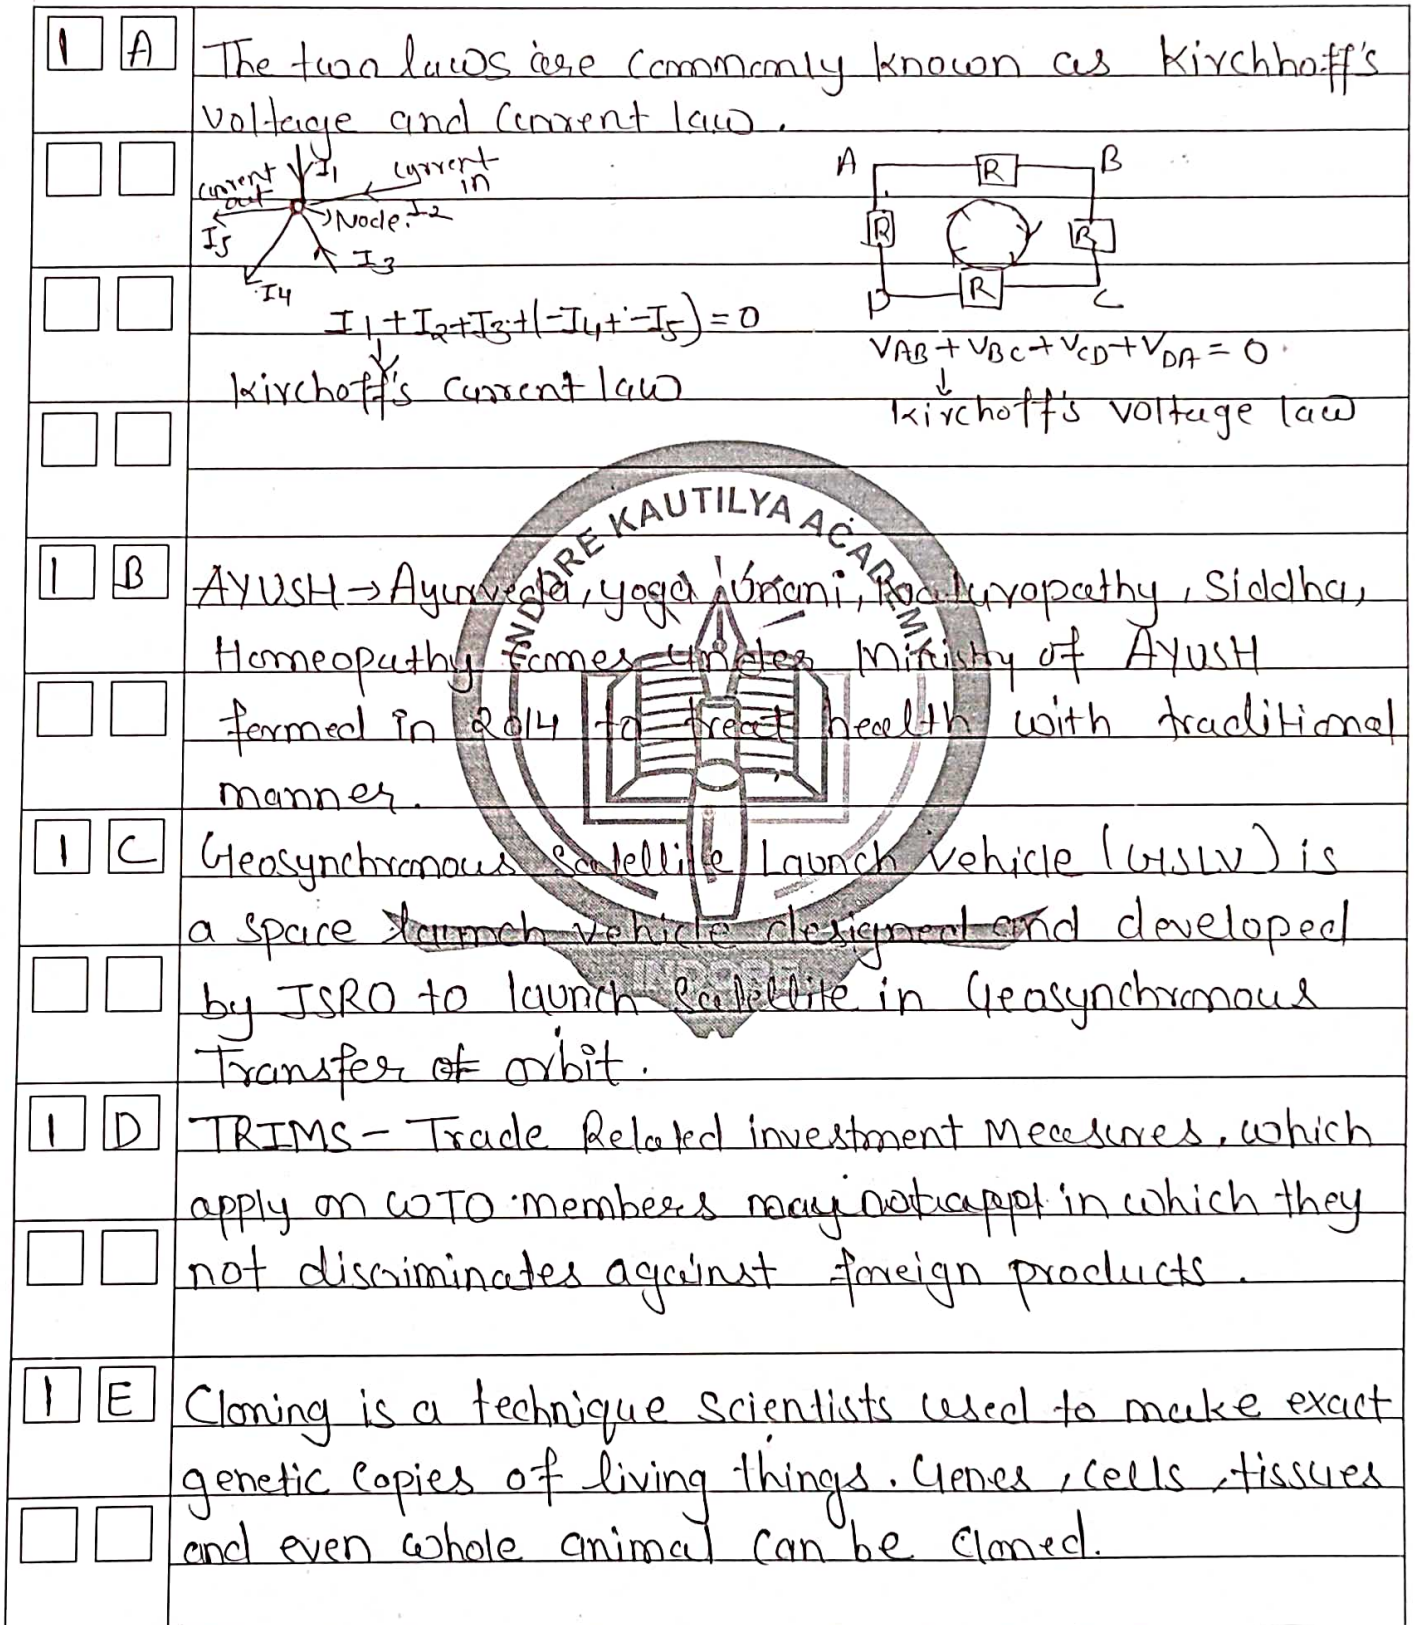 1 A The two laws are commonly known as Kirchhoff's
voltage and current law.
current out I1 current in
Node. I2
I5
I3
I4
A R B
R R
D R C
I1+I2+I3+(-I4+-I5)=0
VAB+VBC+VCD+VDA=0
Kirchoff's current law
Kirchoff's voltage law
INDORE KAUTILYA ACADEMY
1 B AYUSH→Ayurveda, yoga, Unani, Naturopathy, Siddha,
Homeopathy comes under Ministry of AYUSH
formed in 2014 to treat health with traditional
manner.
1 C Geosynchronous Satellite Launch Vehicle (GSLV) is
a space launch vehicle designed and developed
by ISRO to launch Satellite in Geosynchronous
INDORE
Transfer of orbit.
1 D TRIMS- Trade Related investment Measures, which
apply on WTO members may not in which they
not discriminates against foreign products.
1 E Cloning is a technique scientists used to make exact
genetic copies of living things. Genes, cells, tissues
and even whole animal can be cloned.